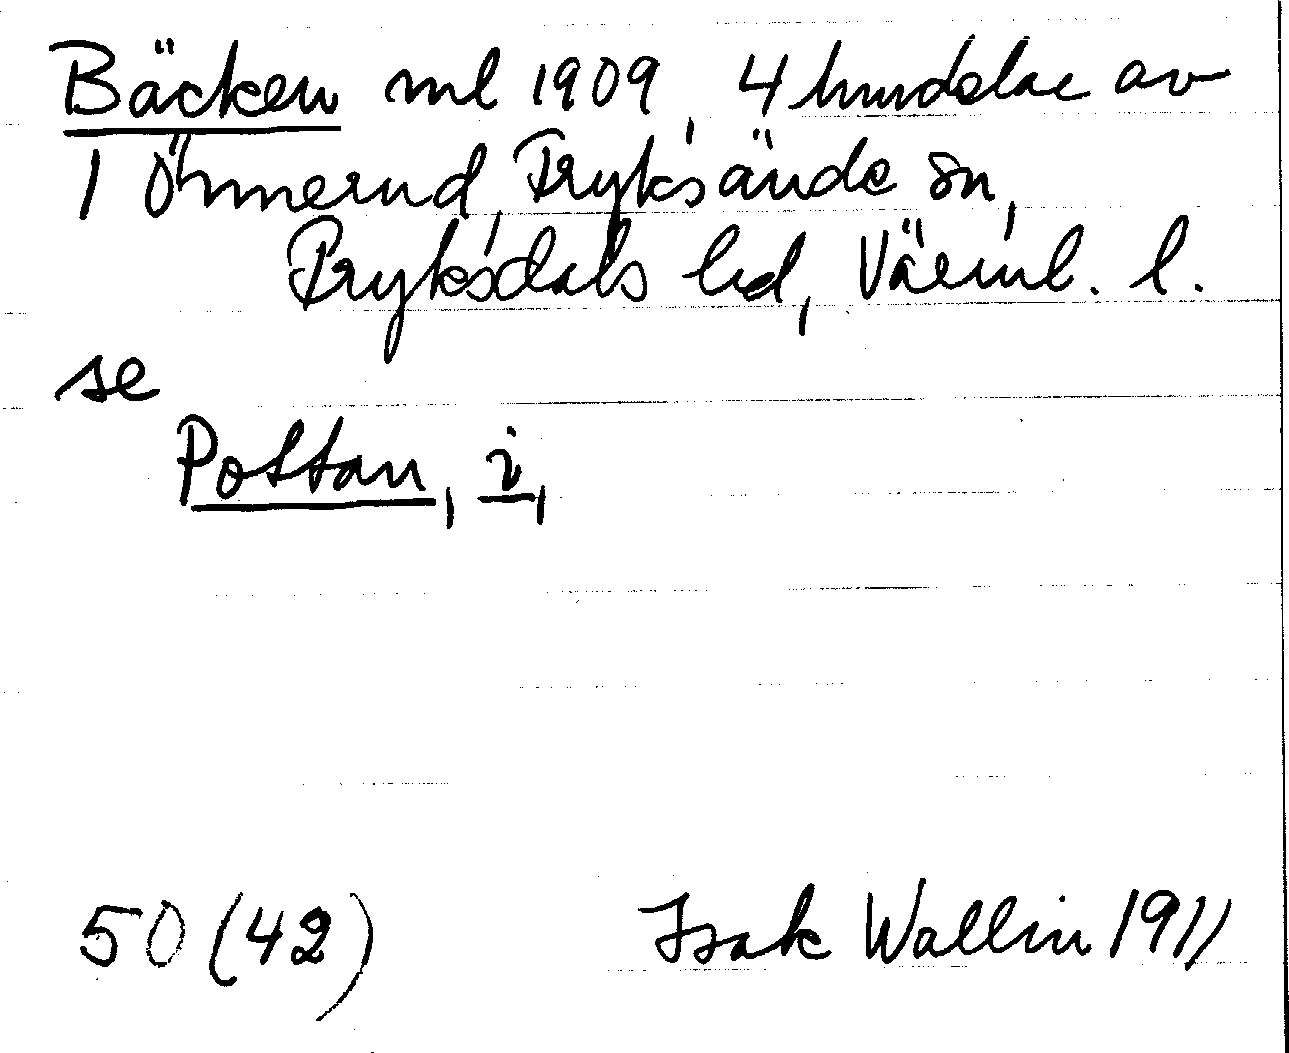 Bäcken ml 1909, 4 hmndelar av
1 Ömnerud, Fryksände sn,
Fryksdals hd, Värml. l.
se
Pottan, i,
50 (42) Isak Wallin 1911